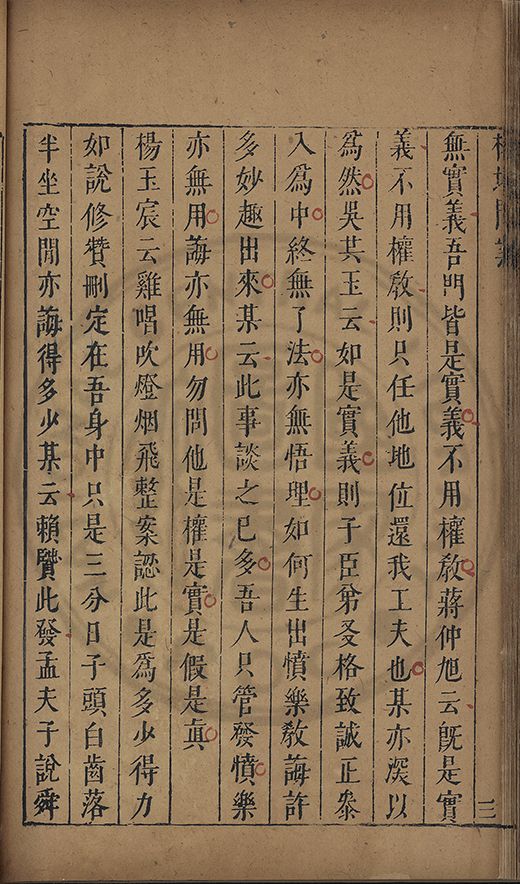 無實義吾門皆是實義不用權敎蔣仲旭云旣是實
義不用權敎則只任他地位還我工夫也某亦深以
爲然吳其玉云如是實義則子臣弟友格致誠正叅
入爲中終無了法亦無悟理如何生出憤樂敎誨許
多妙趣出來某云此事談之已多吾人只管發憤樂
亦無用誨亦無用勿問他是權是實是假是眞
楊玉宸云雞唱吹燈烟飛整案認此是爲多少得力
如說修贊刪定在吾身中只是三分日子頭白齒落
半坐空閒亦誨得多少某云賴贒此發孟夫子說舜
三